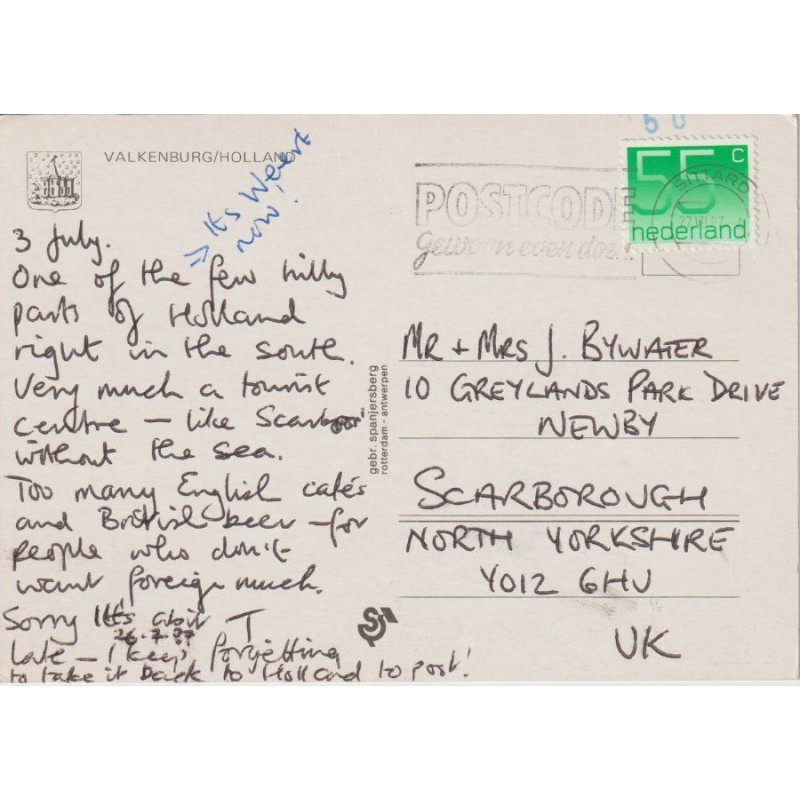 VALKENBURG/HOLLAND
⇒ It's Weert
now!
3 July.
One of the few hilly
parts of Holland
right in the south.
Very much a tourist
centre – like Scarboro'
without the sea.
Too many English cafés
and British beer – for
people who don't
want foreign much.
Sorry It's a bit T
26.7.87
late – I keep forgetting
to take it back to Holland to post!
gebr. spanjersberg
rotterdam - antwerpen
50
55 c
nederland
POSTCODE
Gewoon even doen
SITTARD
MR + MRS J. BYWATER
10 GREYLANDS PARK DRIVE
NEWBY
SCARBOROUGH
NORTH YORKSHIRE
YO12 6HU
UK